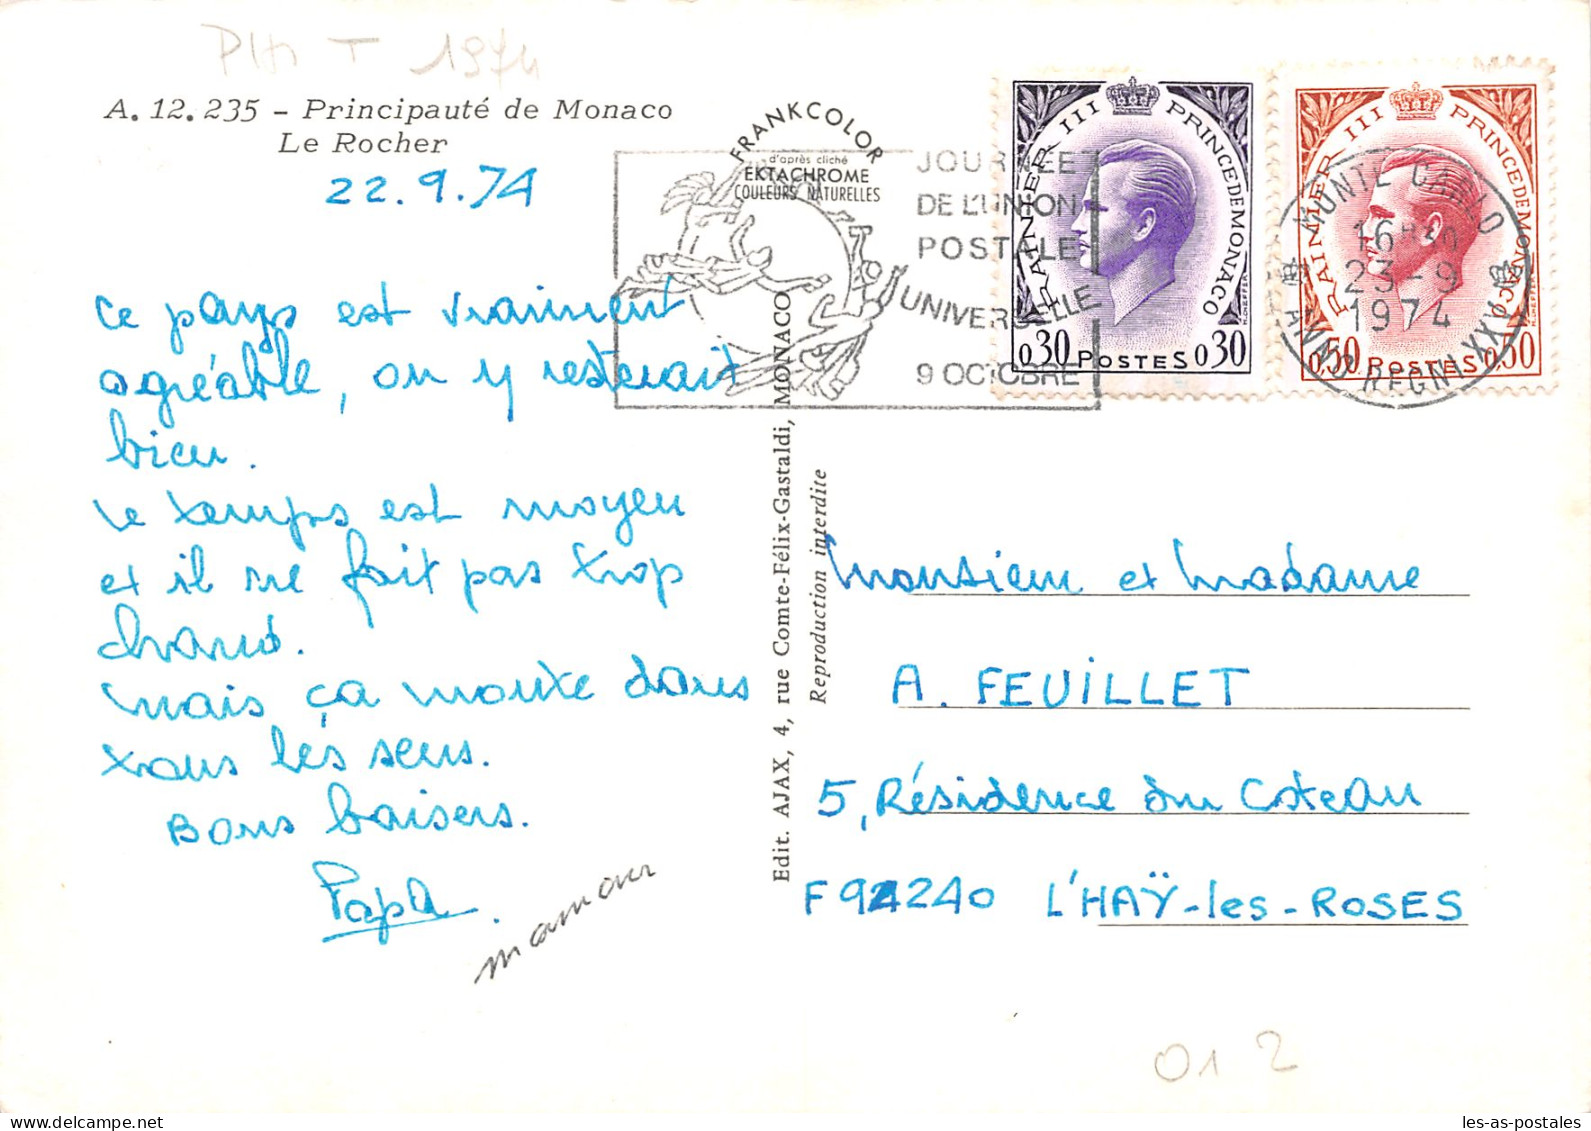 A. 12. 235 - Principauté de Monaco
Le Rocher
22.9.74
ce pays est vraiment
agréable, on y resterait
bien.
Le temps est moyen
et il ne fait pas trop
chaud.
Mais ça monte dans
tous les sens.
Bons baisers.
Papa.
mamour
1974
FRANKCOLOR
d'après cliché
EKTACHROME
COULEURS NATURELLES
JOURNÉE
DE L'UNION
POSTALE
UNIVERSELLE
9 OCTOBRE
RAINIER III PRINCE DE MONACO
0,30 POSTES 0,30
RAINIER III PRINCE DE MONACO
0,50 POSTES 0,50
MONTE CARLO
16
23-9
1974
ANNO REGNI XXV
Edit. AJAX, 4, rue Comte-Félix-Gastaldi, MONACO
Reproduction interdite
Monsieur et Madame
A. FEUILLET
5, Résidence du Coteau
F94240 L'HAŸ-les-ROSES
01 2
les-as-postales.com